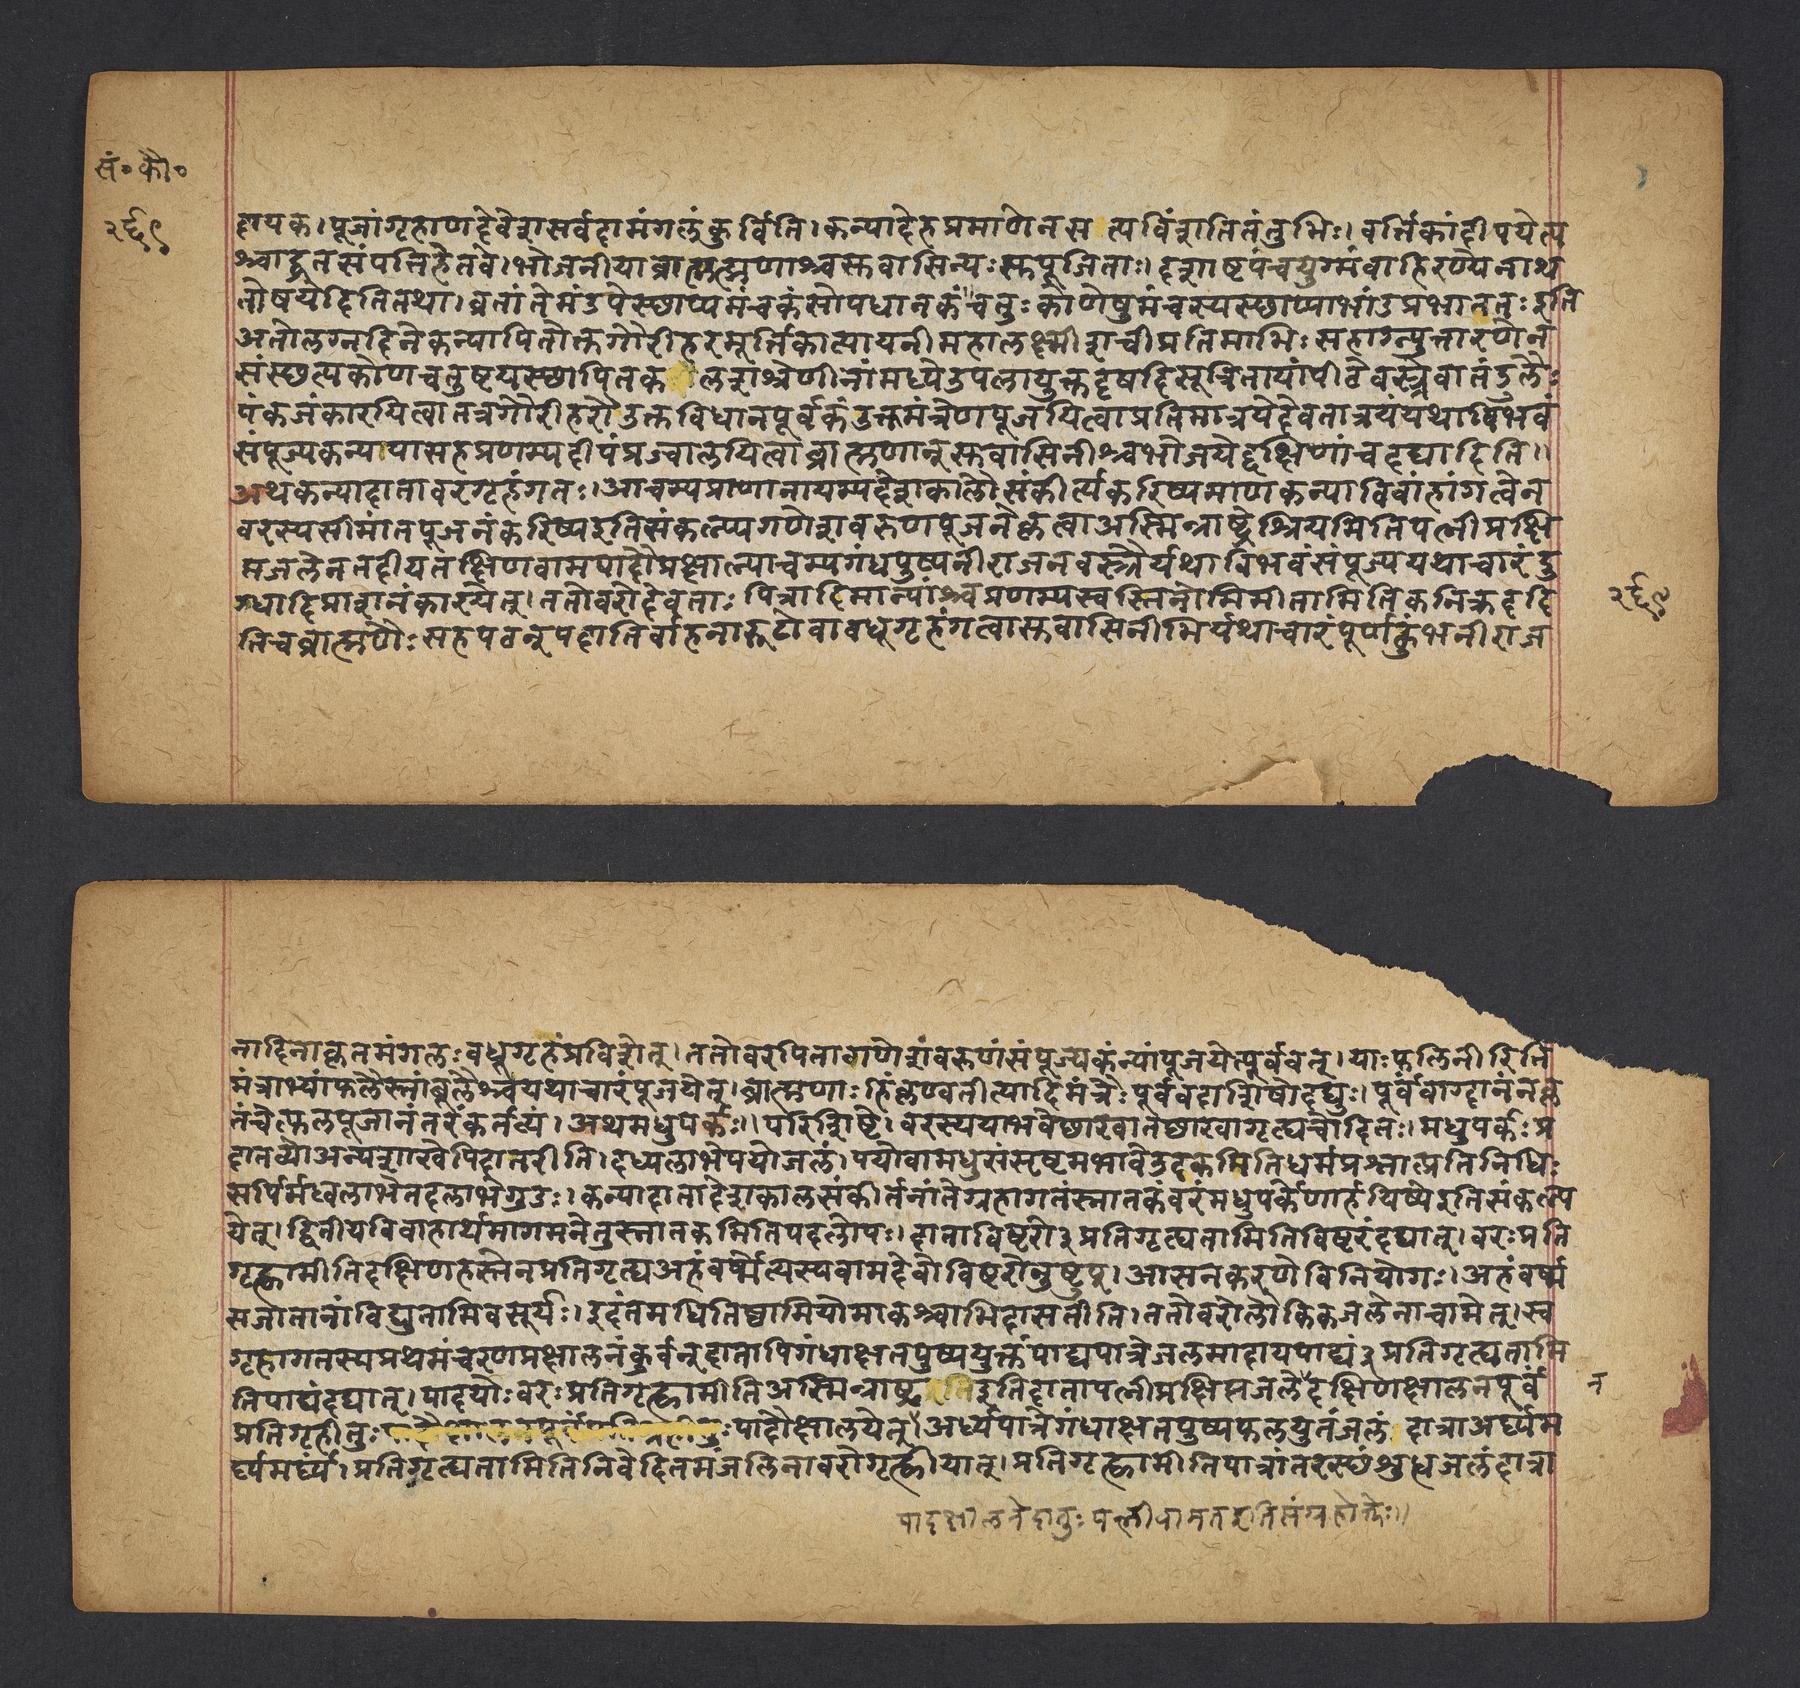 सं॰ कौ॰
२६९
दायक। पूजांगृहाणदेवेशसर्वदामंगलंकुर्विति। कन्यादेहप्रमाणेनस प्तविंशतितंतुभिः। वर्त्तिकांदीपयेत्प
श्चाद्घृतसंपत्तिहेतवे। भोजनीयाब्राह्मणाश्चसुवासिन्यःसुपूजिताः। दशाष्टपंचयुग्मंवाहिरण्येनाथ
तोषयेदितितथा। व्रतांतेमंडपेस्थाप्यमंचकंसोपधानकं चतुःकोणेषुमंचस्यस्थाप्याभांडप्रभाततःइति
अतोलग्नदिनेकन्यापितोक्तगौरीहरमूर्त्तिकात्यायनीमहालक्ष्मीशचीप्रतिमाभिःसहाग्न्युत्तारणेन
संस्कृत्यकोणचतुष्टयस्थापितक लशश्रेणीनांमध्येउपलायुक्तदृषदिसूत्रितायांपीठेवस्त्रेवातंडुलैः
पंकजंकारयित्वातत्रगौरीहरौउक्तविधानपूर्वकंउक्तमंत्रेणपूजयित्वाप्रतिमात्रयेदेवतात्रयंयथाविभवं
संपूज्यकन्ययासहप्रणम्यदीपंप्रज्वालयित्वाब्राह्मणान्सुवासिनीश्चभोजयेद्दक्षिणांचदद्यादिति॥
अथकन्यादातावरगृहंगतः। आचम्यप्राणानायम्यदेशकालौसंकीर्त्यकरिष्यमाणकन्याविवाहांगत्वेन
वरस्यसीमांतपूजनंकरिष्यइतिसंकल्प्यगणेशवरुणपूजनेकृत्वाअस्मिन्राष्ट्रेश्रियमितिपत्नीप्रक्षि
प्तजलेनतदीयतक्षिणवामपादौप्रक्षाल्याचम्यगंधपुष्पनीराजनवस्त्रैर्यथाविभवंसंपूज्ययथाचारंदु
ग्धादिप्राशनंकारयेत्। ततोवरोदेवताःपित्रादिमान्यांश्चप्रणम्यस्वस्तिनोमिमीतामितिकनिक्रददि
२६९
तिचब्राह्मणैःसहपठन्पदातिर्वाहनारूढोवावधूगृहंगत्वासुवासिनीभिर्यथाचारंपूर्णकुंभनीराज
नादिनाकृतमंगलःवधूगृहंप्रविशेत्। ततोवरपितागणेशंवरुणंसंपूज्यकन्यांपूजयेत्पूर्ववत्। याःफलिनीरिति
मंत्राभ्यांफलैस्तांबूलैश्चयथाचारंपूजयेत्। ब्राह्मणाःहिंकृण्वतीत्यादिमंत्रैःपूर्ववदाशिषोदद्युः। पूर्वंवाग्दानंनकृ
तंचेत्फलपूजानंतरंकर्तव्यं। अथमधुपर्कः॥ परिशिष्टे। वरस्ययाभवेछाखातछाखागृह्यचोदितः। मधुपर्कःप्र
दातव्योअन्यशाखेपिदातरीति। दध्यलाभेपयोजलं। पयोवामधुसंसृष्टमभावेउदकमितिधर्मप्रश्नात्प्रतिनिधिः
सर्पिर्मध्वलाभेतदलाभेगुडः। कन्यादातादेशकालसंकीर्तनांतेगृहागतंस्नातकंवरंमधुपर्केणार्हयिष्येइतिसंकल्प
येत्। द्वितीयविवाहार्थमागमनेतुस्नातकमितिपदलोपः। दाताविष्टरो३प्रतिगृह्यतामितिविष्टरंदद्यात्। वरःप्रति
गृह्णामीतिदक्षिणहस्तेनप्रतिगृह्यअहंवर्ष्मेत्यस्यवामदेवोविष्टरोनुष्टुप्। आसनकरणेविनियोगः। अहंवर्ष्म
सजातानांविद्युतामिवसूर्यः। इदंतमधितिष्ठामियोमाकश्चाभिदासतीति। ततोवरोलौकिकजलेनाचामेत्। स्व
गृहागतस्यप्रथमंचरणप्रक्षालनंकुर्वन्दातापिगंधाक्षतपुष्पयुक्तंपाद्यपात्रेजलमादायपाद्यं३प्रतिगृह्यतामि
तिपाद्यंदद्यात्। पादयोःवरःप्रतिगृह्णामीतिअस्मिन्राष्ट्र इतिदातापत्नीप्रक्षिप्तजलेदक्षिणक्षालनपूर्वं
न
प्रतिगृहीतुः पादौक्षालयेत्। अर्घ्यपात्रेगंधाक्षतपुष्पफलयुतंजलं दात्राअर्घ्यम
र्घ्यमर्घ्यं। प्रतिगृह्यतामितिनिवेदितमंजलिनावरोगृह्णीयात्। प्रतिगृह्णामीतिपात्रांतरस्थंशुधजलंदात्रा
पादक्षालनेदातुःपत्नीवामतइतिसंग्रहोक्तेः॥